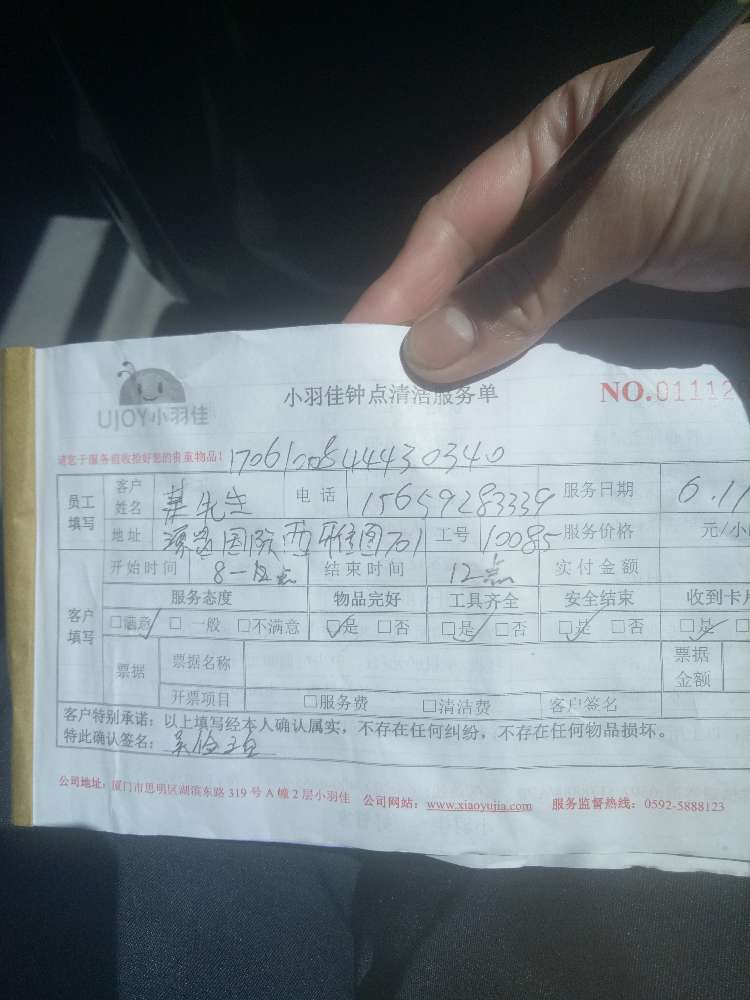 UJOY小羽佳
小羽佳钟点清洁服务单
NO.01112
请您于服务前收捡好您的贵重物品!
员工填写 客户姓名 先生 电话 15659283339 服务日期 6.1
地址 国际西雅图701 工号 10085 服务价格 元/小
开始时间 8-12点 结束时间 12点 实付金额
客户填写 服务态度 物品完好 工具齐全 安全结束 收到卡片
□满意 □一般 □不满意 □是 □否 □是 □否 □是 □否 □是 □
票据 票据名称 票据金额
开票项目 □服务费 □清洁费 客户签名
客户特别承诺：以上填写经本人确认属实，不存在任何纠纷，不存在任何物品损坏。
特此确认签名：
公司地址：厦门市思明区湖滨东路 319 号 A 幢 2 层小羽佳 公司网站：www.xiaoyujia.com 服务监督热线：0592-5888123